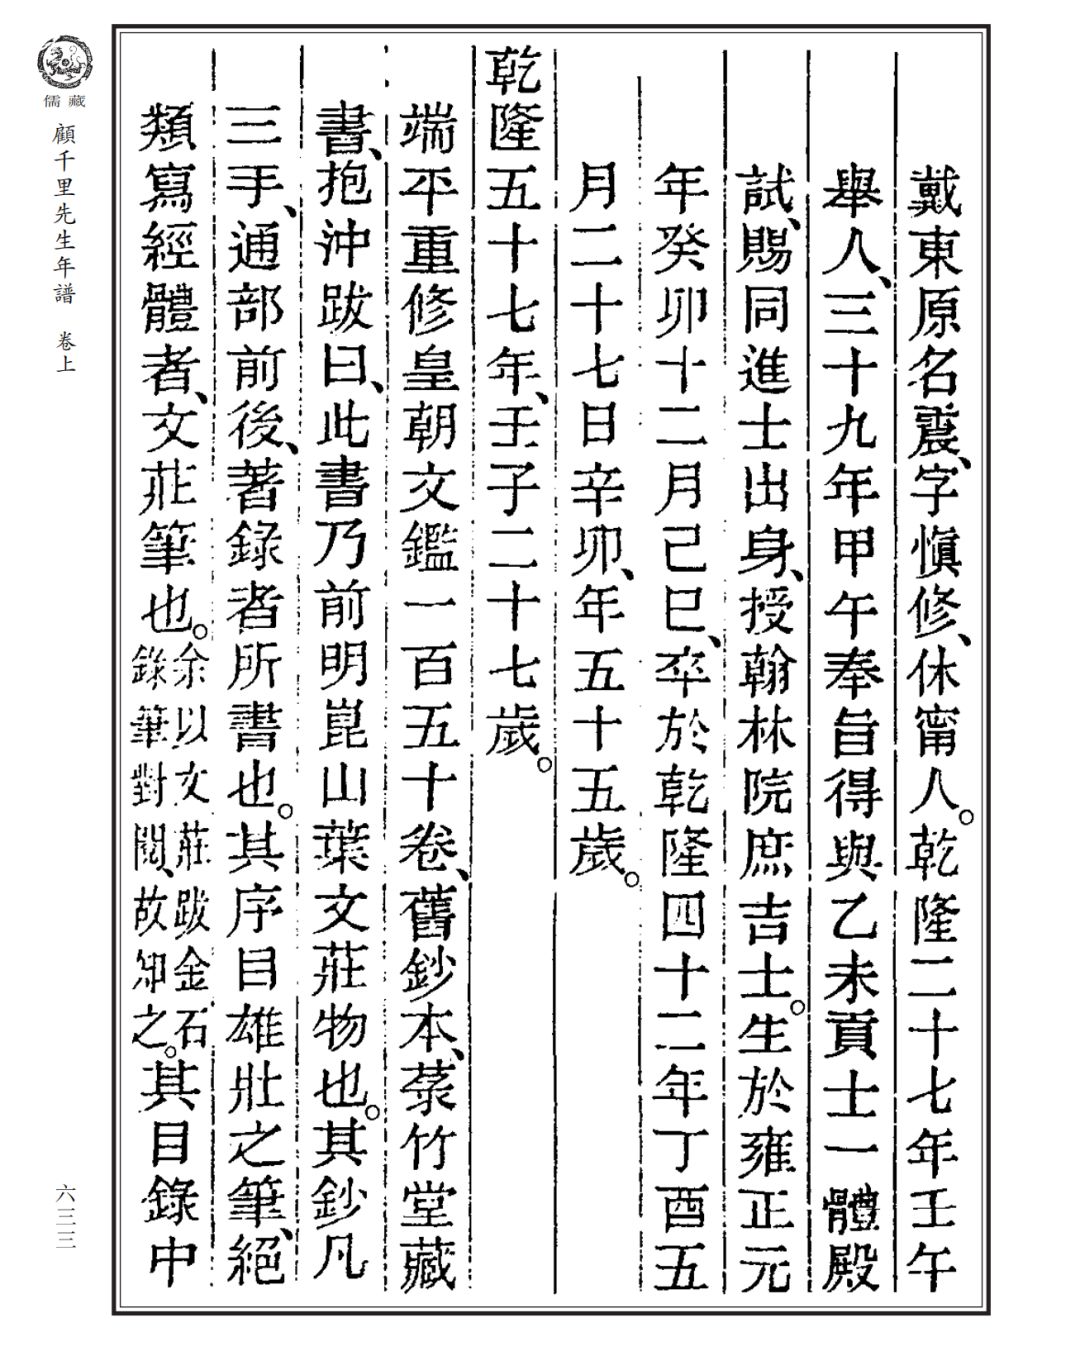 戴東原名震、字愼修、休甯人。乾隆二十七年壬午
舉人、三十九年甲午奉旨得與乙未貢士一體殿
試、賜同進士出身、授翰林院庶吉士。生於雍正元
年癸卯十二月己巳、卒於乾隆四十二年丁酉五
月二十七日辛卯、年五十五歲。
乾隆五十七年、壬子二十七歲。
端平重修皇朝文鑑一百五十卷、舊鈔本、菉竹堂藏
書、抱沖跋曰、此書乃前明崑山葉文莊物也。其鈔凡
三手、通部前後、著錄者所書也。其序目雄壯之筆、絕
類寫經體者、文莊筆也。余以文莊跋金石錄筆對閱、故知之。其目錄中
儒藏
顧千里先生年譜 卷上
六三三